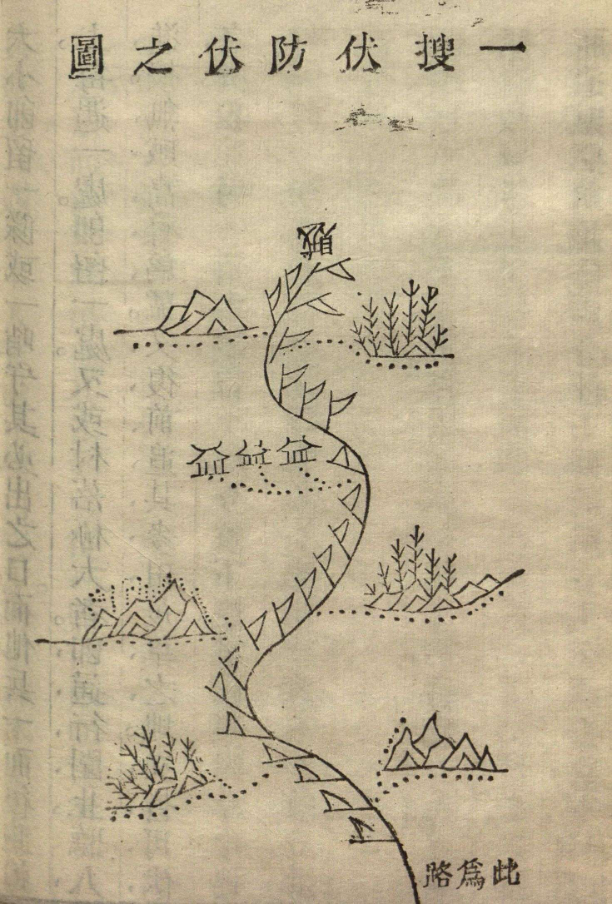 一搜伏防伏之圖
賊
此爲路